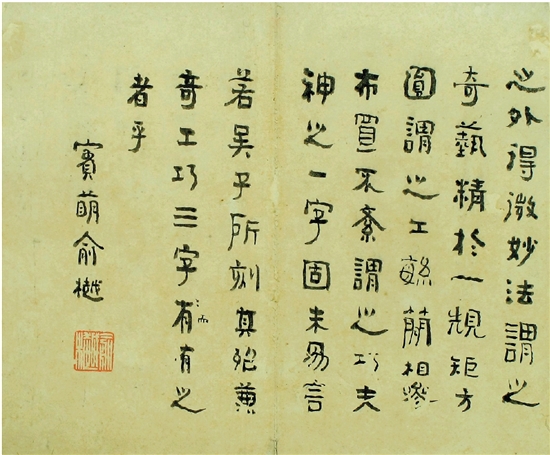 之外得微妙法謂之
奇藝精於一規矩方
圓謂之工緐簡相參
布置不紊謂之巧夫
神之一字固未易言
若吴子所刻其殆兼
奇工巧三字有而有之
者乎
賓萌俞樾